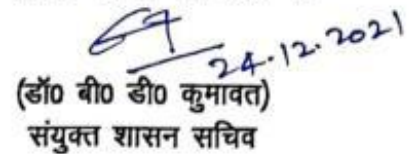 24.12.2021
(डॉ0 बी0 डी0 कुमावत)
संयुक्त शासन सचिव